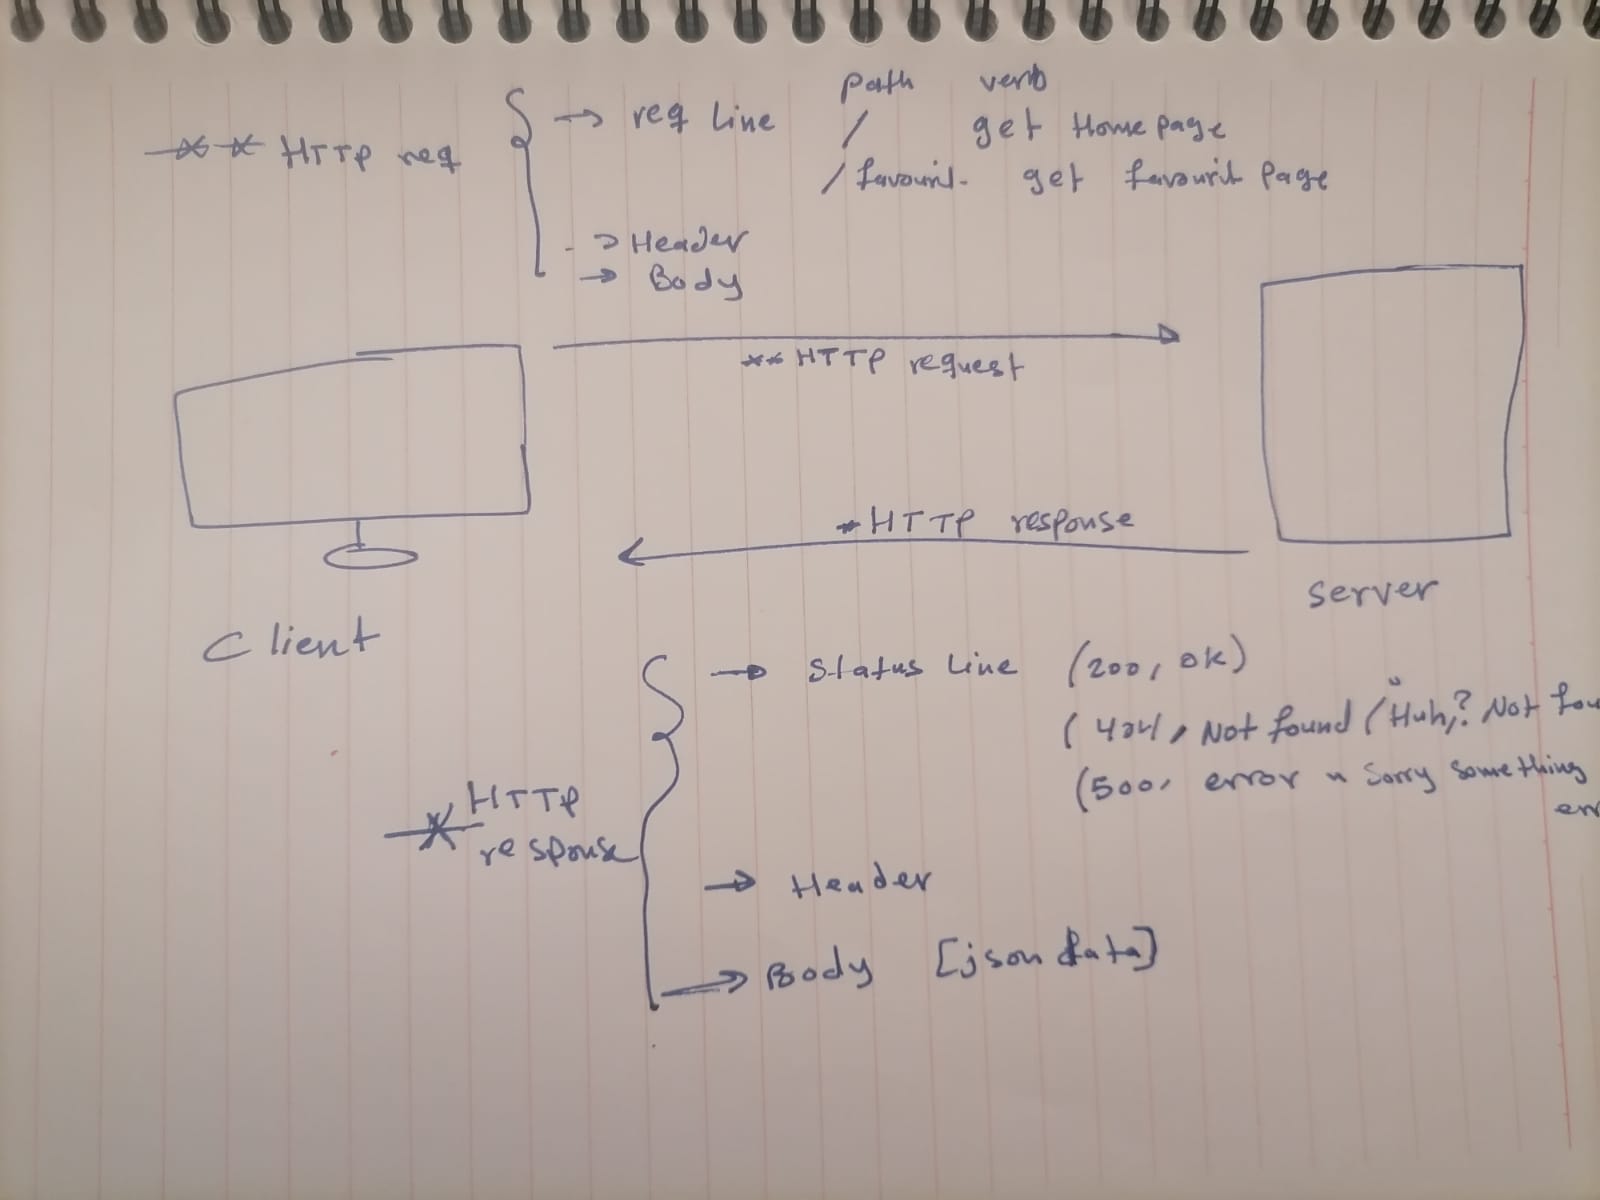 path verb
** HTTP req → req line / get Home page
/ favourit- get favourit Page
-> Header
→ Body
** HTTP request
* HTTP response
server
Client
→ Status Line (200, ok)
( 404, Not found (Huh,? Not fou
(500, error " Sorry something
err
* HTTP
response
→ Header
→ Body [json data]